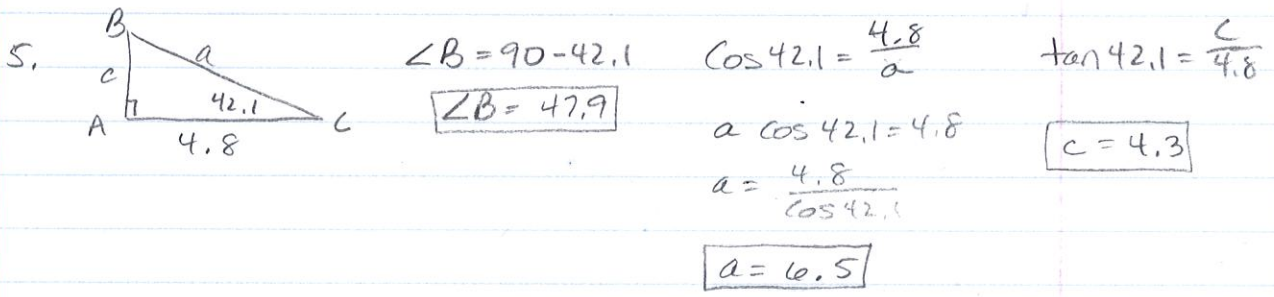 5.
B
a
c
42.1
A
C
4.8
∠B = 90 - 42.1
∠B = 47.9
Cos 42.1 = 4.8/a
a cos 42.1 = 4.8
a = 4.8/cos 42.1
a = 6.5
tan 42.1 = c/4.8
c = 4.3